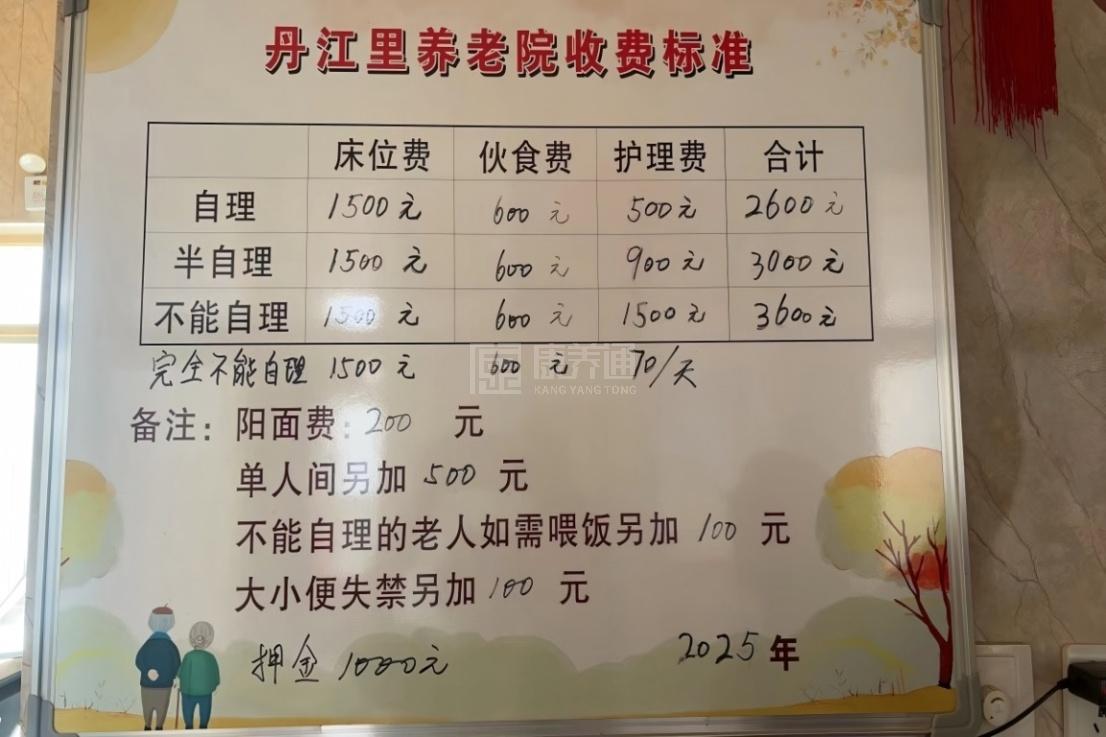 丹江里养老院收费标准
床位费 伙食费 护理费 合计
自理 1500元 600元 500元 2600元
半自理 1500元 600元 900元 3000元
不能自理 1500元 600元 1500元 3600元
完全不能自理 1500元 600元 70/天
康养通
KANG YANG TONG
备注：阳面费：200 元
单人间另加 500 元
不能自理的老人如需喂饭另加 100 元
大小便失禁另加 100 元
押金 1000元
2025年